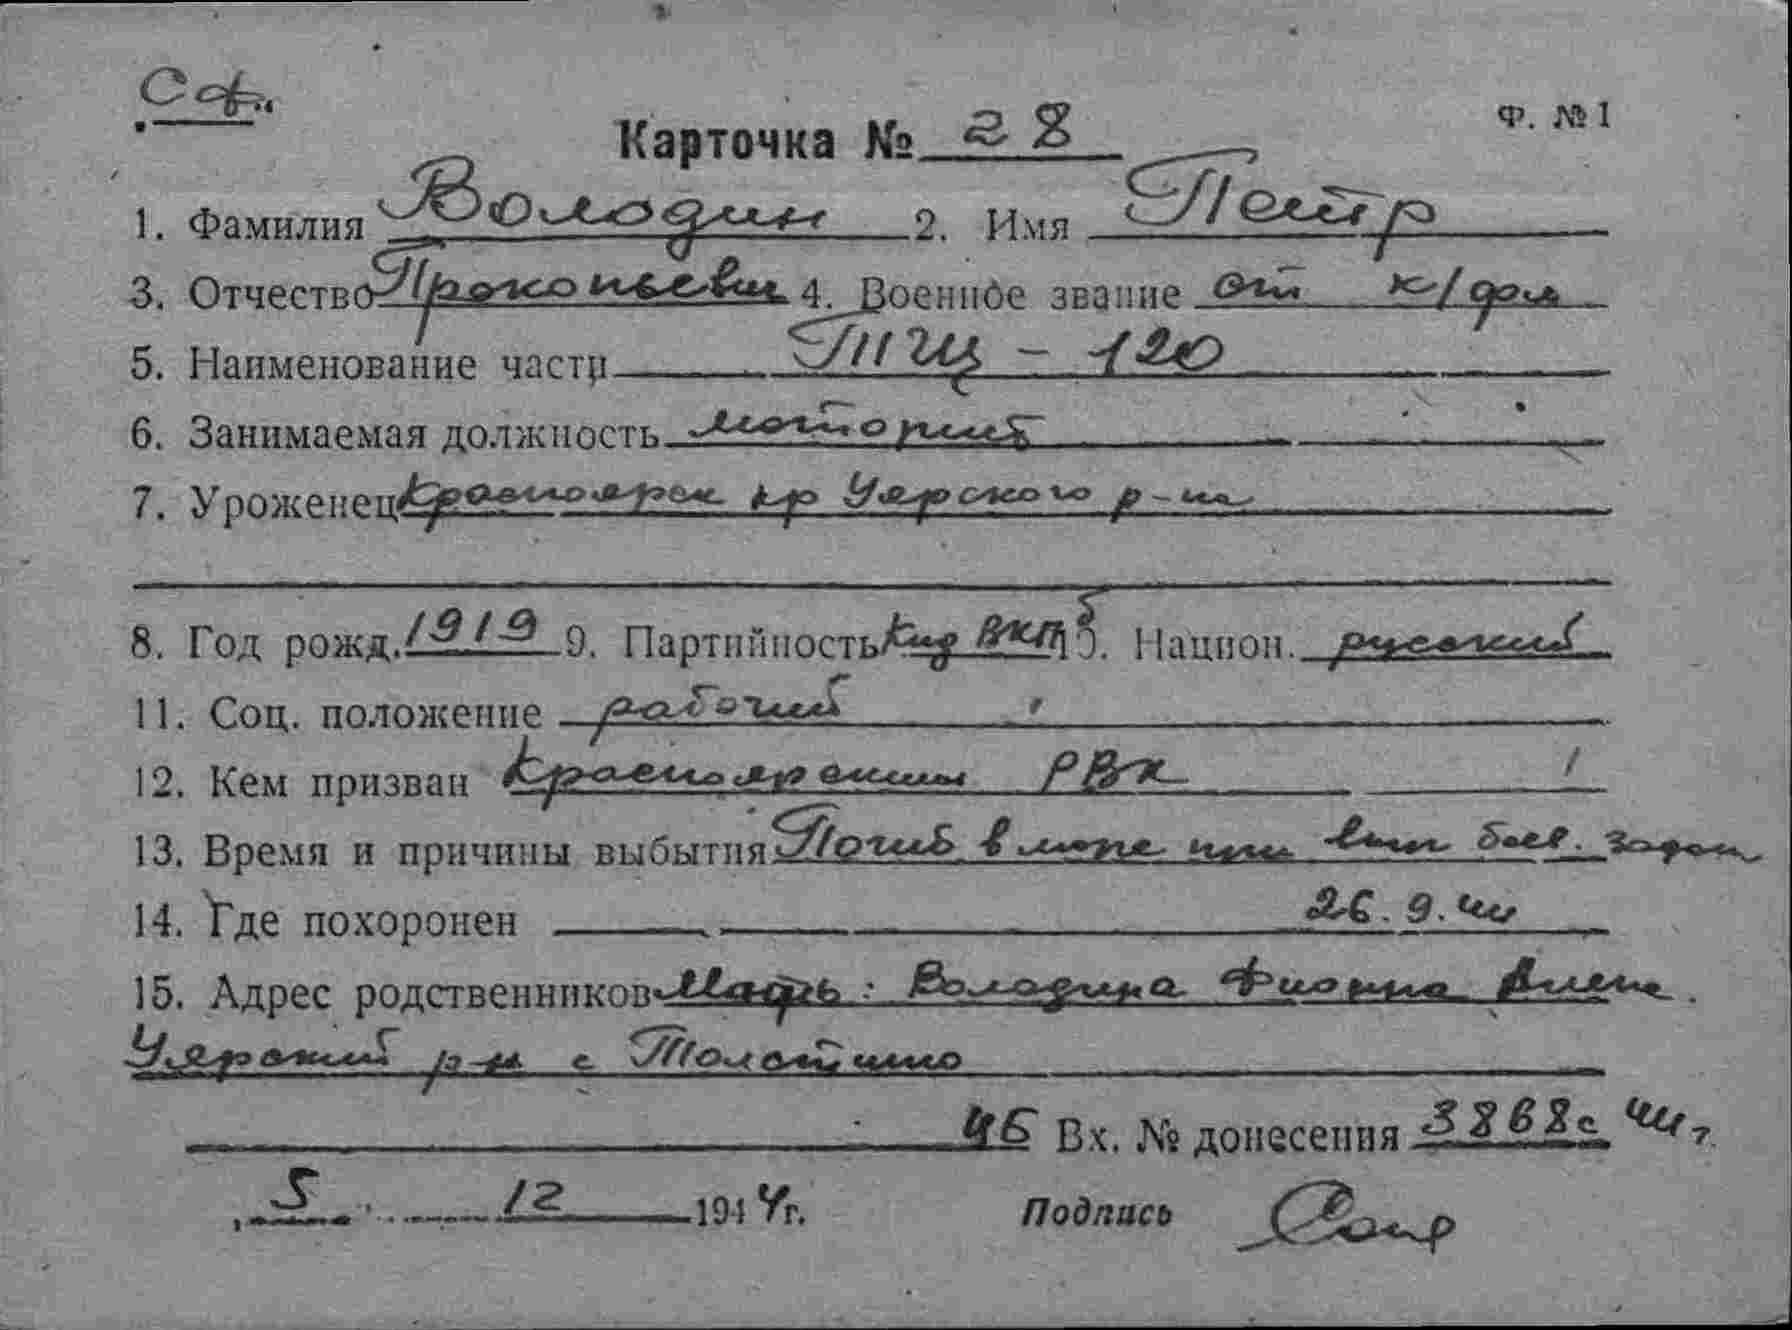 Сф.
Ф. №1
Карточка № 28
1. Фамилия Володин 2. Имя Петр
3. Отчество Прокопьевич 4. Военное звание ст к/фл
5. Наименование части ТЩ - 120
6. Занимаемая должность моторист
7. Уроженец Красноярск кр Уярского р-на
8. Год рожд. 1919 9. Партийность Кнд ВКПб 10. Национ. русский
11. Соц. положение рабочий
12. Кем призван Красноярским РВК
13. Время и причины выбытия Погиб в море при вып боев. задан
26.9.44
14. Где похоронен
15. Адрес родственников Мать: Володина
Уярский р-н с Толстихино
Вх. № донесения 3868с 44г
5 12 1944г. Подпись